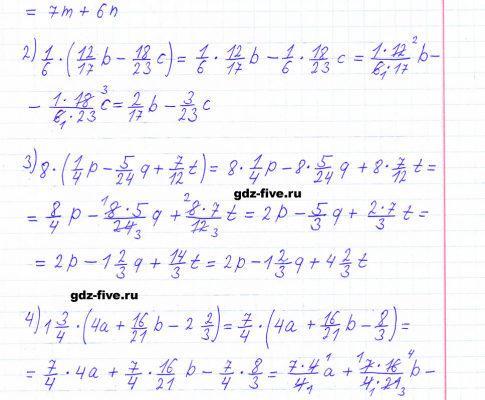 = 7m + 6n
2) 1/6 · (12/17 b − 18/23 c) = 1/6 · 12/17 b − 1/6 · 18/23 c = 1·12²/6₁·17 b −
− 1·18³/6₁·23 c = 2/17 b − 3/23 c
3) 8 · (1/4 p − 5/24 q + 7/12 t) = 8 · 1/4 p − 8 · 5/24 q + 8 · 7/12 t =
gdz-five.ru
= 8/4 p − ¹8·5/24₃ q + ²8·7/12₃ t = 2p − 5/3 q + 2·7/3 t =
= 2p − 1 2/3 q + 14/3 t = 2p − 1 2/3 q + 4 2/3 t
gdz-five.ru
4) 1 3/4 · (4a + 16/21 b − 2 2/3) = 7/4 · (4a + 16/21 b − 8/3) =
= 7/4 · 4a + 7/4 · 16/21 b − 7/4 · 8/3 = 7·4¹/4₁ a + ¹7·16⁴/4₁·21₃ b −